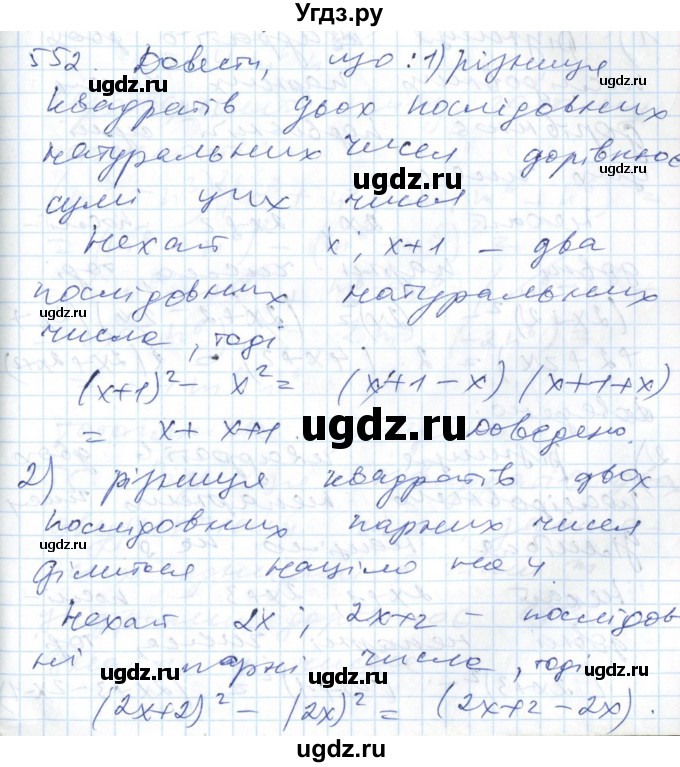 Угдз.ру
552. Довести, що: 1) різниця
квадратів двох послідовних
натуральних чисел дорівнює
сумі цих чисел
Нехай x; x+1 – два
послідовних натуральних
числа, тоді
(x+1)² - x² = (x+1-x)(x+1+x)
= x + x+1. Доведено.
2) різниця квадратів двох
послідовних парних чисел
ділиться націло на 4
Нехай 2x; 2x+2 – послідов
ні парні числа, тоді
(2x+2)² - (2x)² = (2x+2-2x).
ugdz.ru
ugdz.ru
ugdz.ru
ugdz.ru
ugdz.ru
ugdz.ru
ugdz.ru
ugdz.ru
ugdz.ru
ugdz.ru
ugdz.ru
ugdz.ru
ugdz.ru